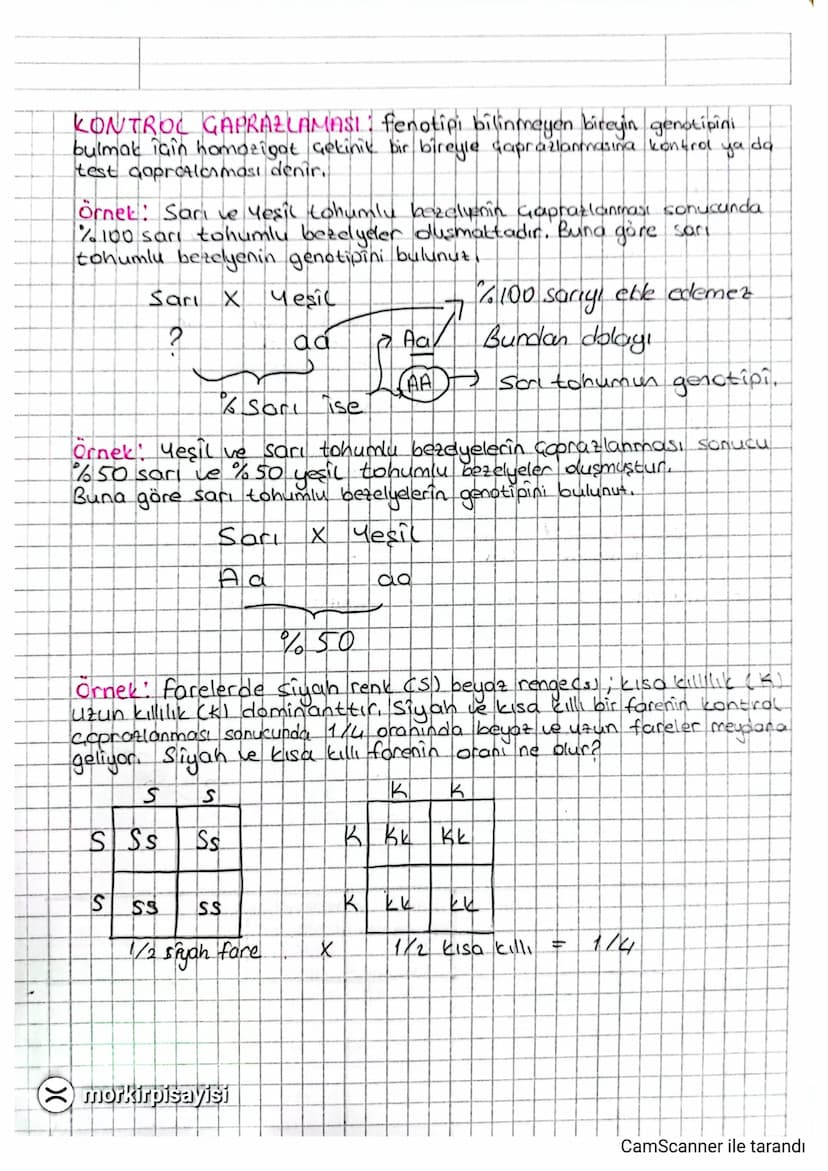 KONTROL ÇAPRAZLAMASI: fenotipi bilinmeyen bireyin genotipini
bulmak için homozigot çekinik bir bireyle çaprazlanmasına kontrol ya da
test çaprazlanması denir.
Örnek: Sarı ve yeşil tohumlu bezelyenin çaprazlanması sonucunda
%100 sarı tohumlu bezelyeler oluşmaktadır. Buna göre sarı
tohumlu bezelyenin genotipini bulunuz.
Sarı X Yeşil
%100 sarıyı elde edemez
? aa Aa Bundan dolayı
AA → Sarı tohumun genotipi.
% Sarı ise
Örnek: Yeşil ve sarı tohumlu bezelyelerin çaprazlanması sonucu
%50 sarı ve %50 yeşil tohumlu bezelyeler oluşmuştur.
Buna göre sarı tohumlu bezelyelerin genotipini bulunuz.
Sarı X Yeşil
Aa aa
%50
Örnek: Farelerde siyah renk (S) beyaz renge(s); kısa kıllılık (K)
uzun kıllılık (k) dominanttır. Siyah ve kısa kıllı bir farenin kontrol
çaprazlanması sonucunda 1/4 oranında beyaz ve uzun fareler meydana
geliyor. Siyah ve kısa kıllı farenin oranı ne olur?
s s K K
S Ss Ss K Kk Kk
S ss ss K kk kk
1/2 siyah fare . X 1/2 kısa kıllı = 1/4
morkirpisayisi
CamScanner ile tarandı